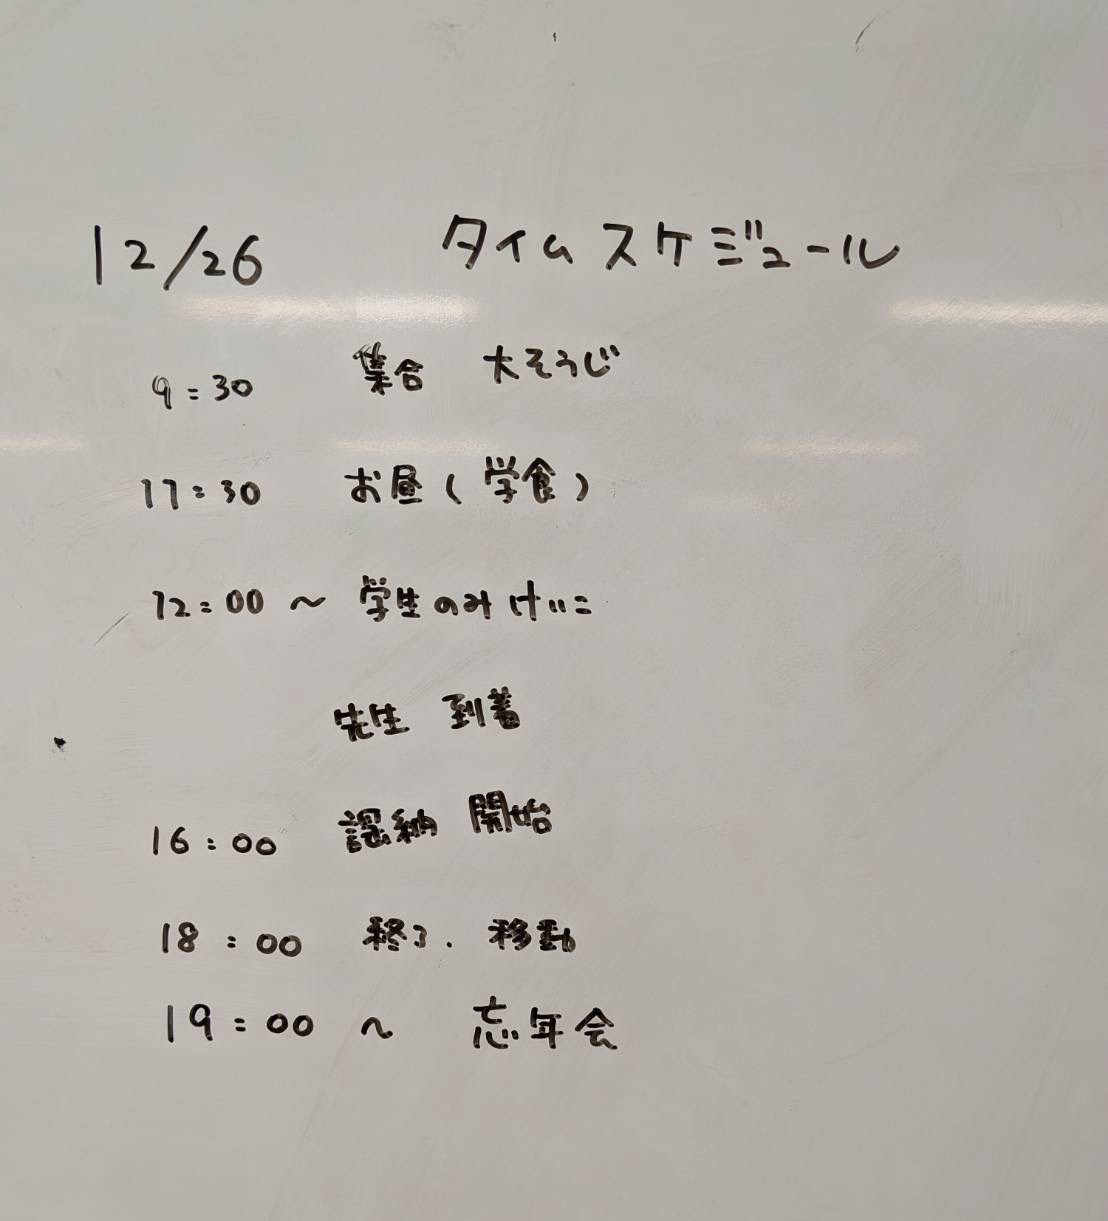 12/26 タイムスケジュール
9:30 集合 大そうじ
11:30 お昼(学食)
12:00 ~ 学生のみけいこ
先生 到着
16:00 謡納 開始
18:00 終了. 移動
19:00 ~ 忘年会